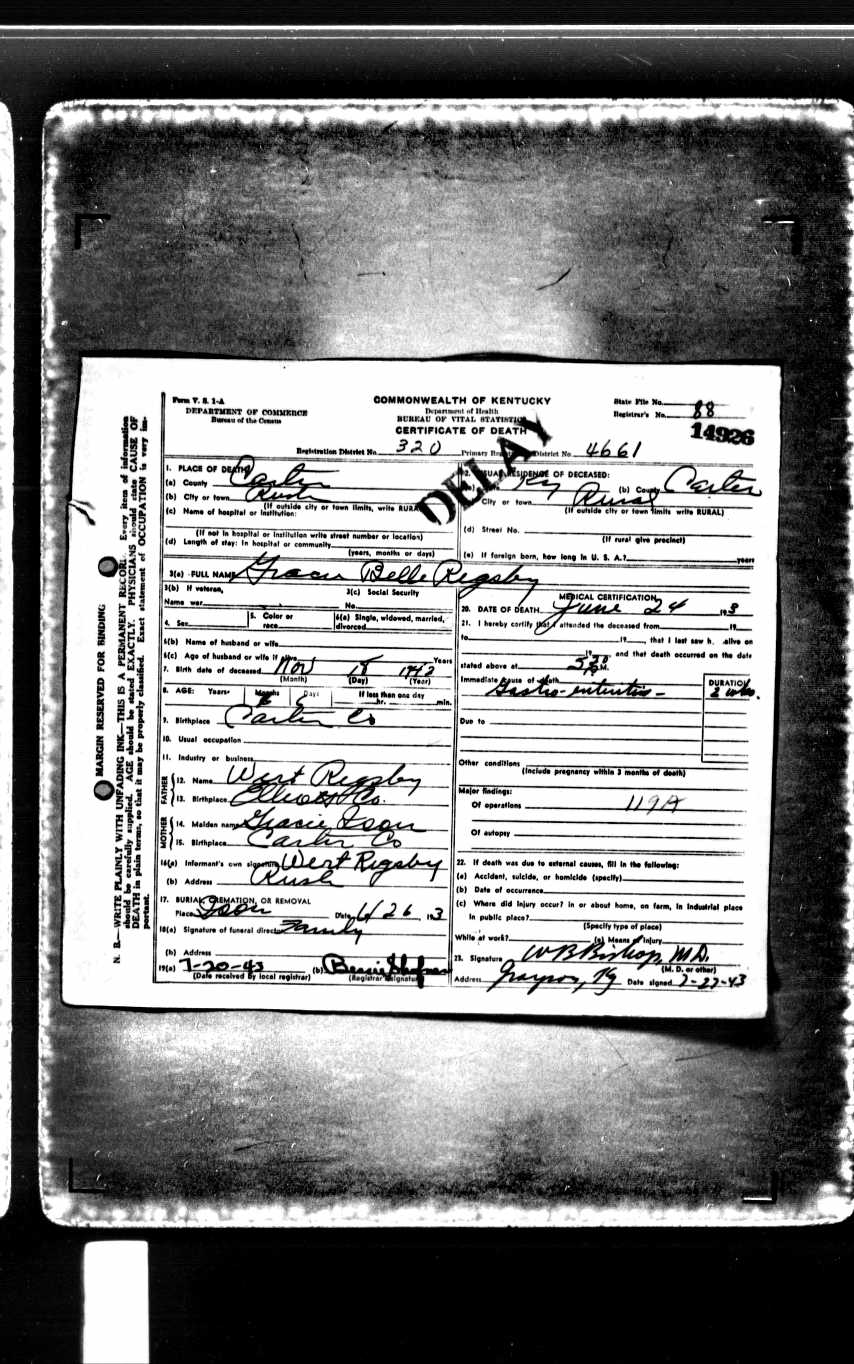 Form V. S. 1-A
DEPARTMENT OF COMMERCE
Bureau of the Census
COMMONWEALTH OF KENTUCKY
Department of Health
BUREAU OF VITAL STATISTICS
CERTIFICATE OF DEATH
State File No.
Registrar's No. 88
14926
Registration District No. 320 Primary Registration District No. 4661
DELAY
1. PLACE OF DEATH
(a) County Carter
(b) City or town Rush
(If outside city or town limits, write RURAL)
(c) Name of hospital or institution:
(If not in hospital or institution write street number or location)
(d) Length of stay: In hospital or community
(years, months or days)
2. USUAL RESIDENCE OF DECEASED:
Ky (b) County Carter
City or town Rural
(If outside city or town limits write RURAL)
(d) Street No.
(If rural give precinct)
(e) If foreign born, how long in U. S. A.? years
3(a) FULL NAME Gracie Belle Regsby
3(b) If veteran,
Name war
3(c) Social Security
No.
4. Sex
5. Color or
race
6(a) Single, widowed, married,
divorced
6(b) Name of husband or wife
6(c) Age of husband or wife if alive Years
7. Birth date of deceased Nov 18 1942
(Month) (Day) (Year)
8. AGE: Years Months Days If less than one day
hr. min.
9. Birthplace Carter Co
10. Usual occupation
11. Industry or business
FATHER
12. Name Wert Regsby
13. Birthplace Elliott Co.
MOTHER
14. Maiden name Gracie Ison
15. Birthplace Carter Co
16(a) Informant's own signature Wert Rigsby
(b) Address Rush
17. BURIAL, CREMATION, OR REMOVAL
Place Ison Date 6/26 193
18(a) Signature of funeral director Family
(b) Address
19(a) 7-20-43 (b) Bessie
(Date received by local registrar) (Registrar's signature)
MEDICAL CERTIFICATION
20. DATE OF DEATH June 24 193
21. I hereby certify that I attended the deceased from 19
to 19, that I last saw h. alive on
19 and that death occurred on the date
stated above at 5 M.
Immediate cause of death
Gastro-enteritis -
DURATION
2 wks.
Due to
Other conditions
(Include pregnancy within 3 months of death)
Major findings:
Of operations 119A
Of autopsy
22. If death was due to external causes, fill in the following:
(a) Accident, suicide, or homicide (specify)
(b) Date of occurrence
(c) Where did injury occur? in or about home, on farm, in industrial place
in public place?
(Specify type of place)
While at work? (e) Means of injury
23. Signature W B Bishop M.D.
(M. D. or other)
Address Grayson, Ky Date signed 7-27-43
MARGIN RESERVED FOR BINDING
N. B.—WRITE PLAINLY WITH UNFADING INK—THIS IS A PERMANENT RECORD. Every item of information
should be carefully supplied. AGE should be stated EXACTLY. PHYSICIANS should state CAUSE OF
DEATH in plain terms, so that it may be properly classified. Exact statement of OCCUPATION is very im-
portant.